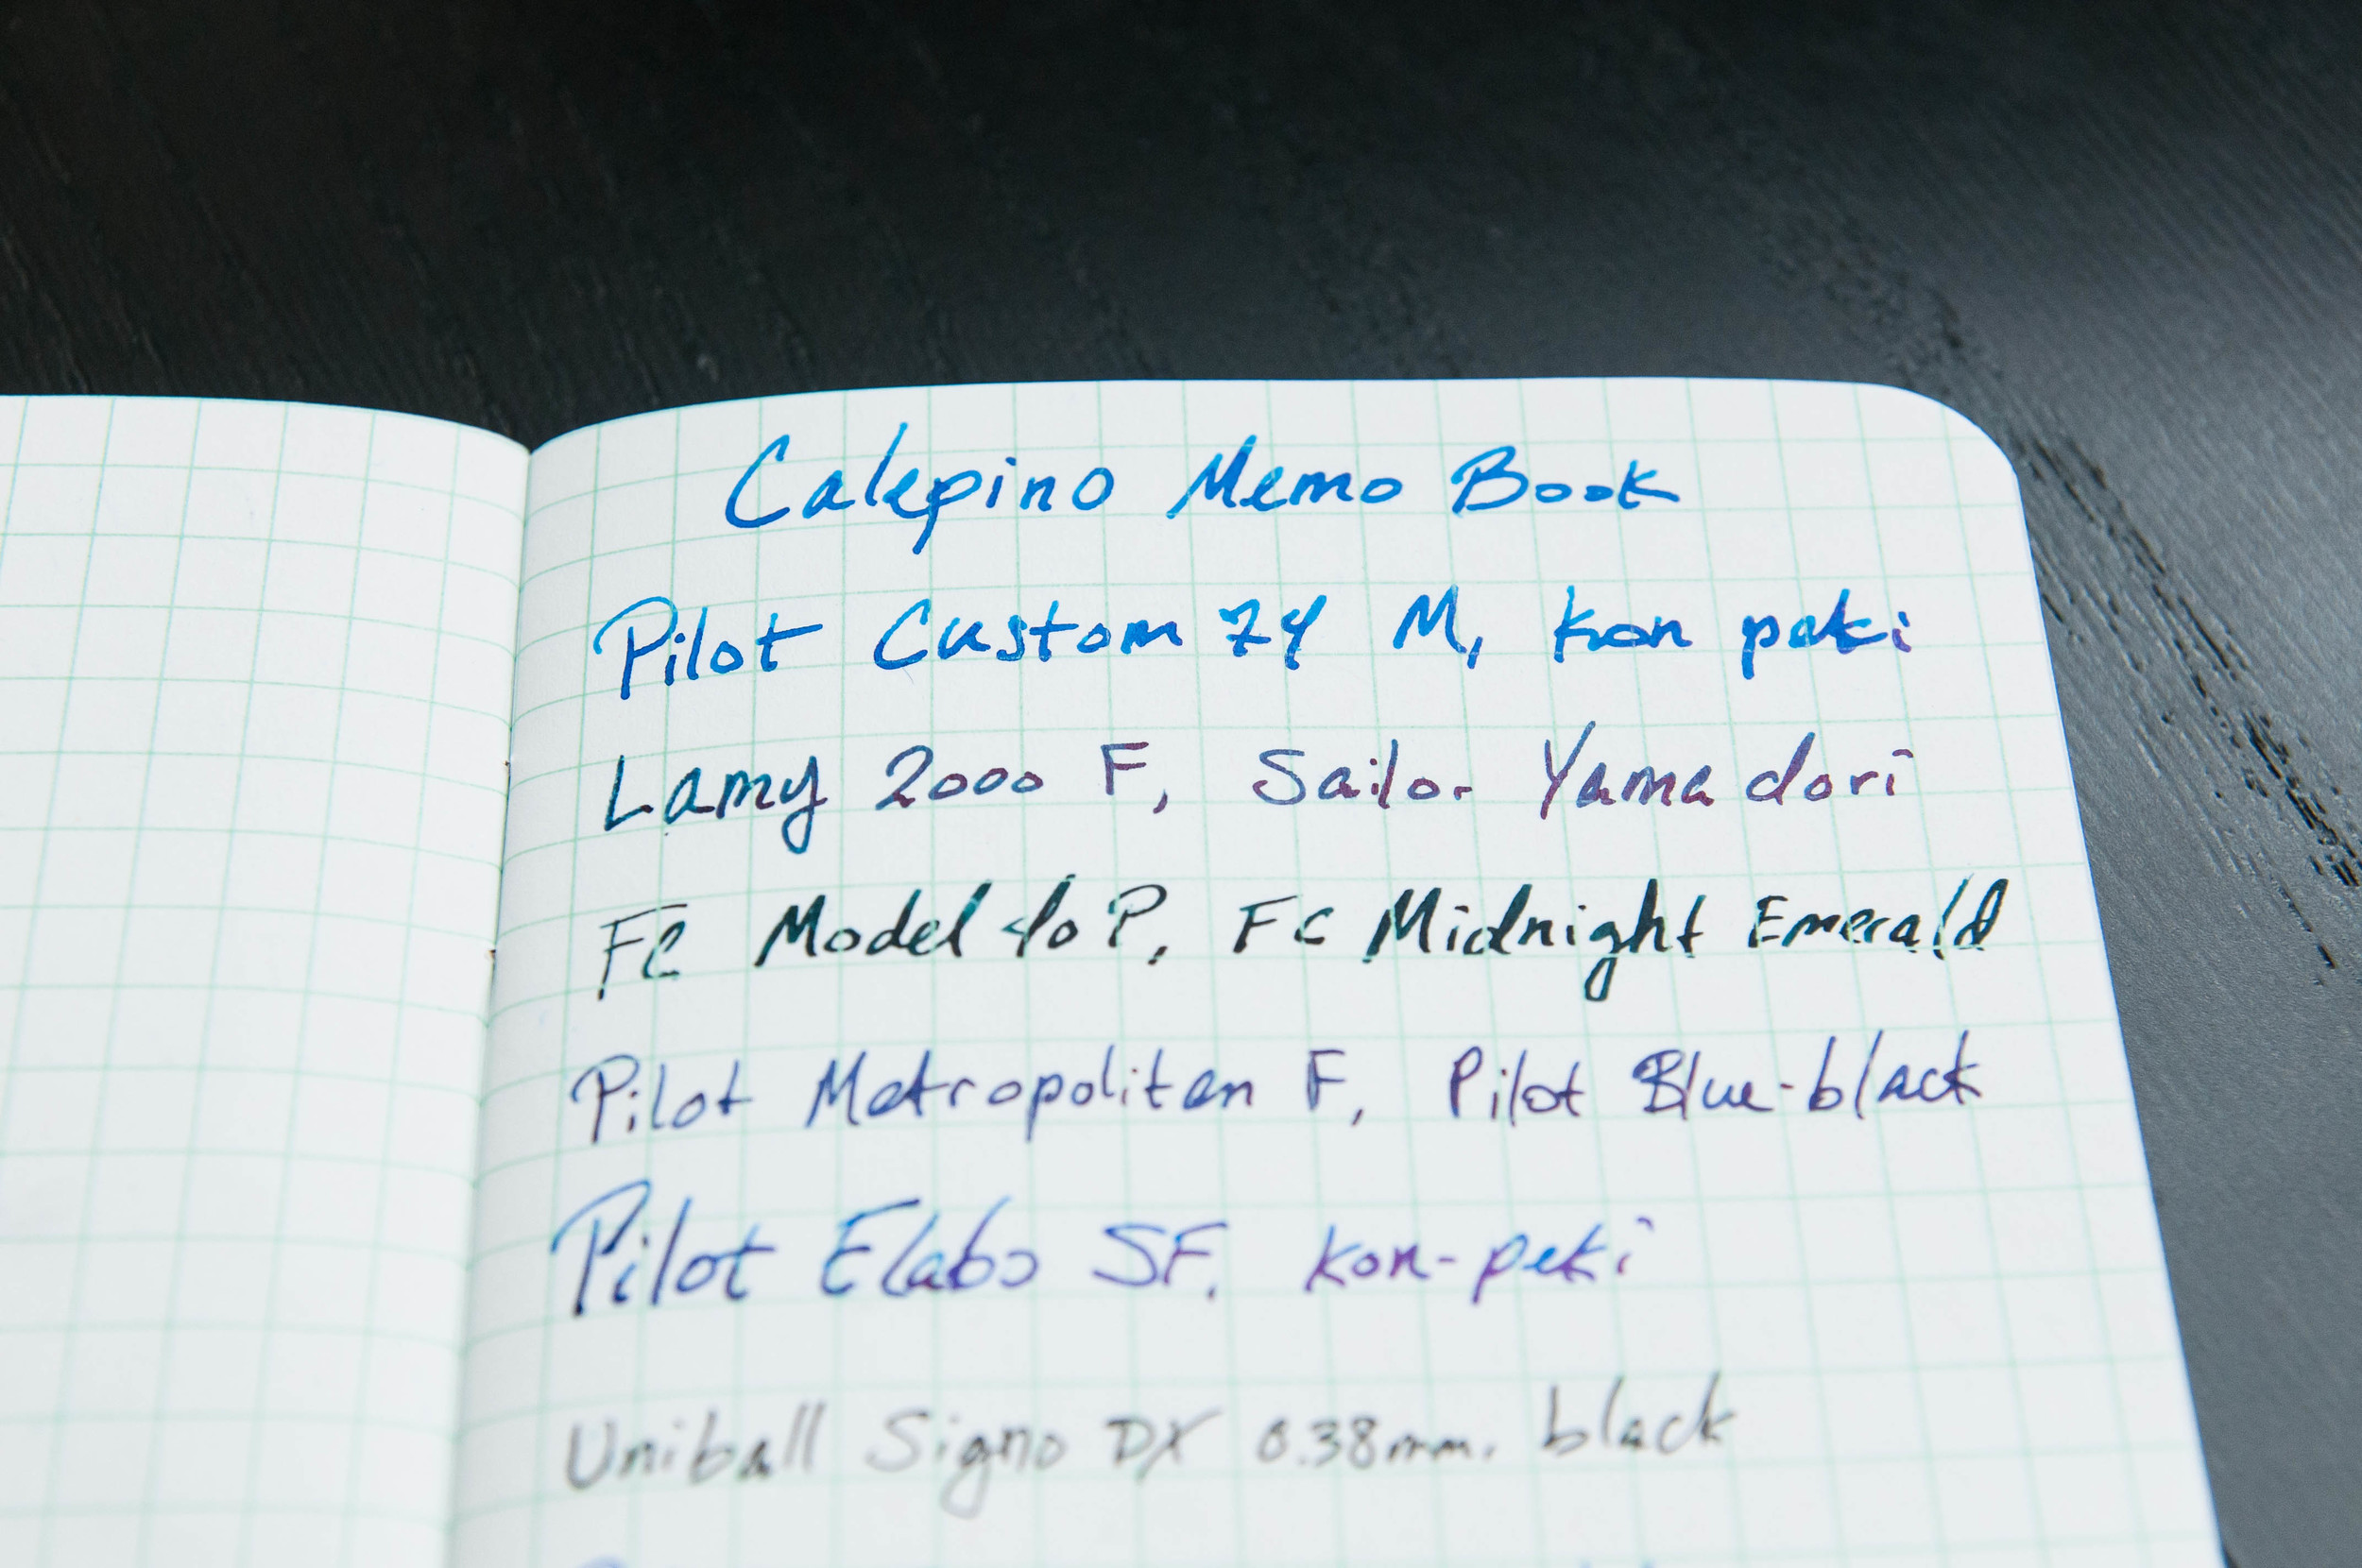 Calepino Memo Book
Pilot Custom 74 M, kon peki
Lamy 2000 F, Sailor Yama dori
FC Model 40 P, FC Midnight Emerald
Pilot Metropolitan F, Pilot Blue-black
Pilot Elabo SF, kon-peki
Uniball Signo DX 0.38mm, black